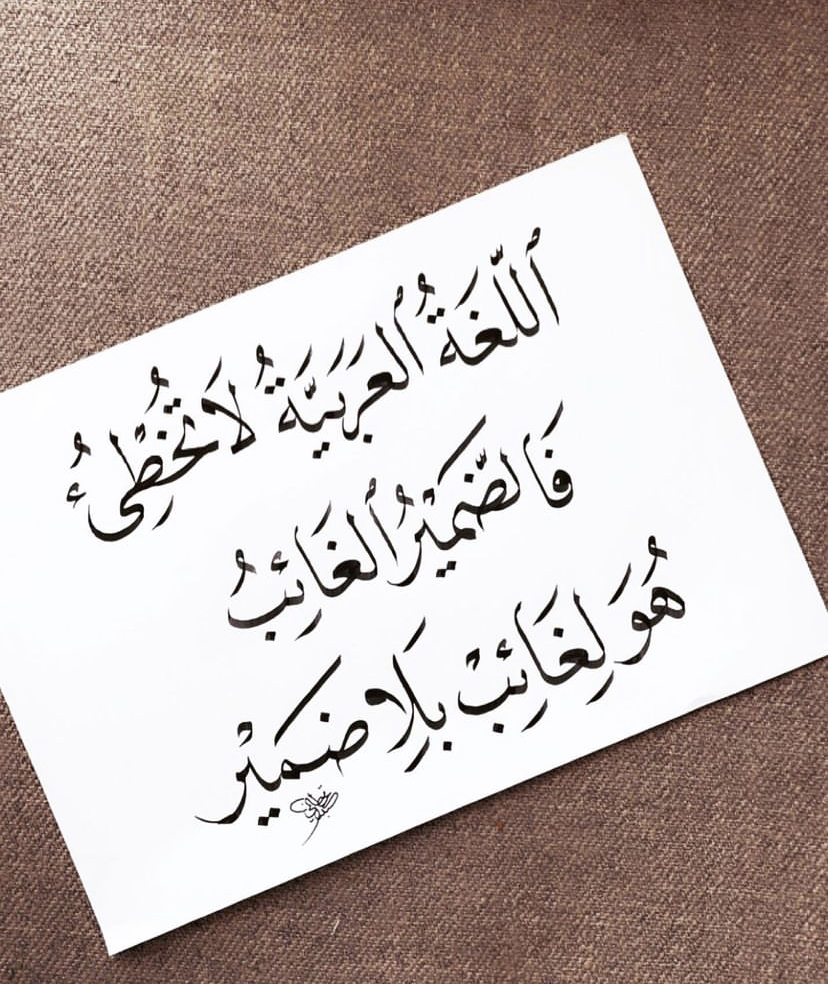 ٱللّغَةُ ٱلعَرَبيَّةُ لاَ تُخْطِئُ
فَالضَّمِيْرُ ٱلغَائِبُ
هُوَ لِغَائِبْ بَلِا ضَمَيْر